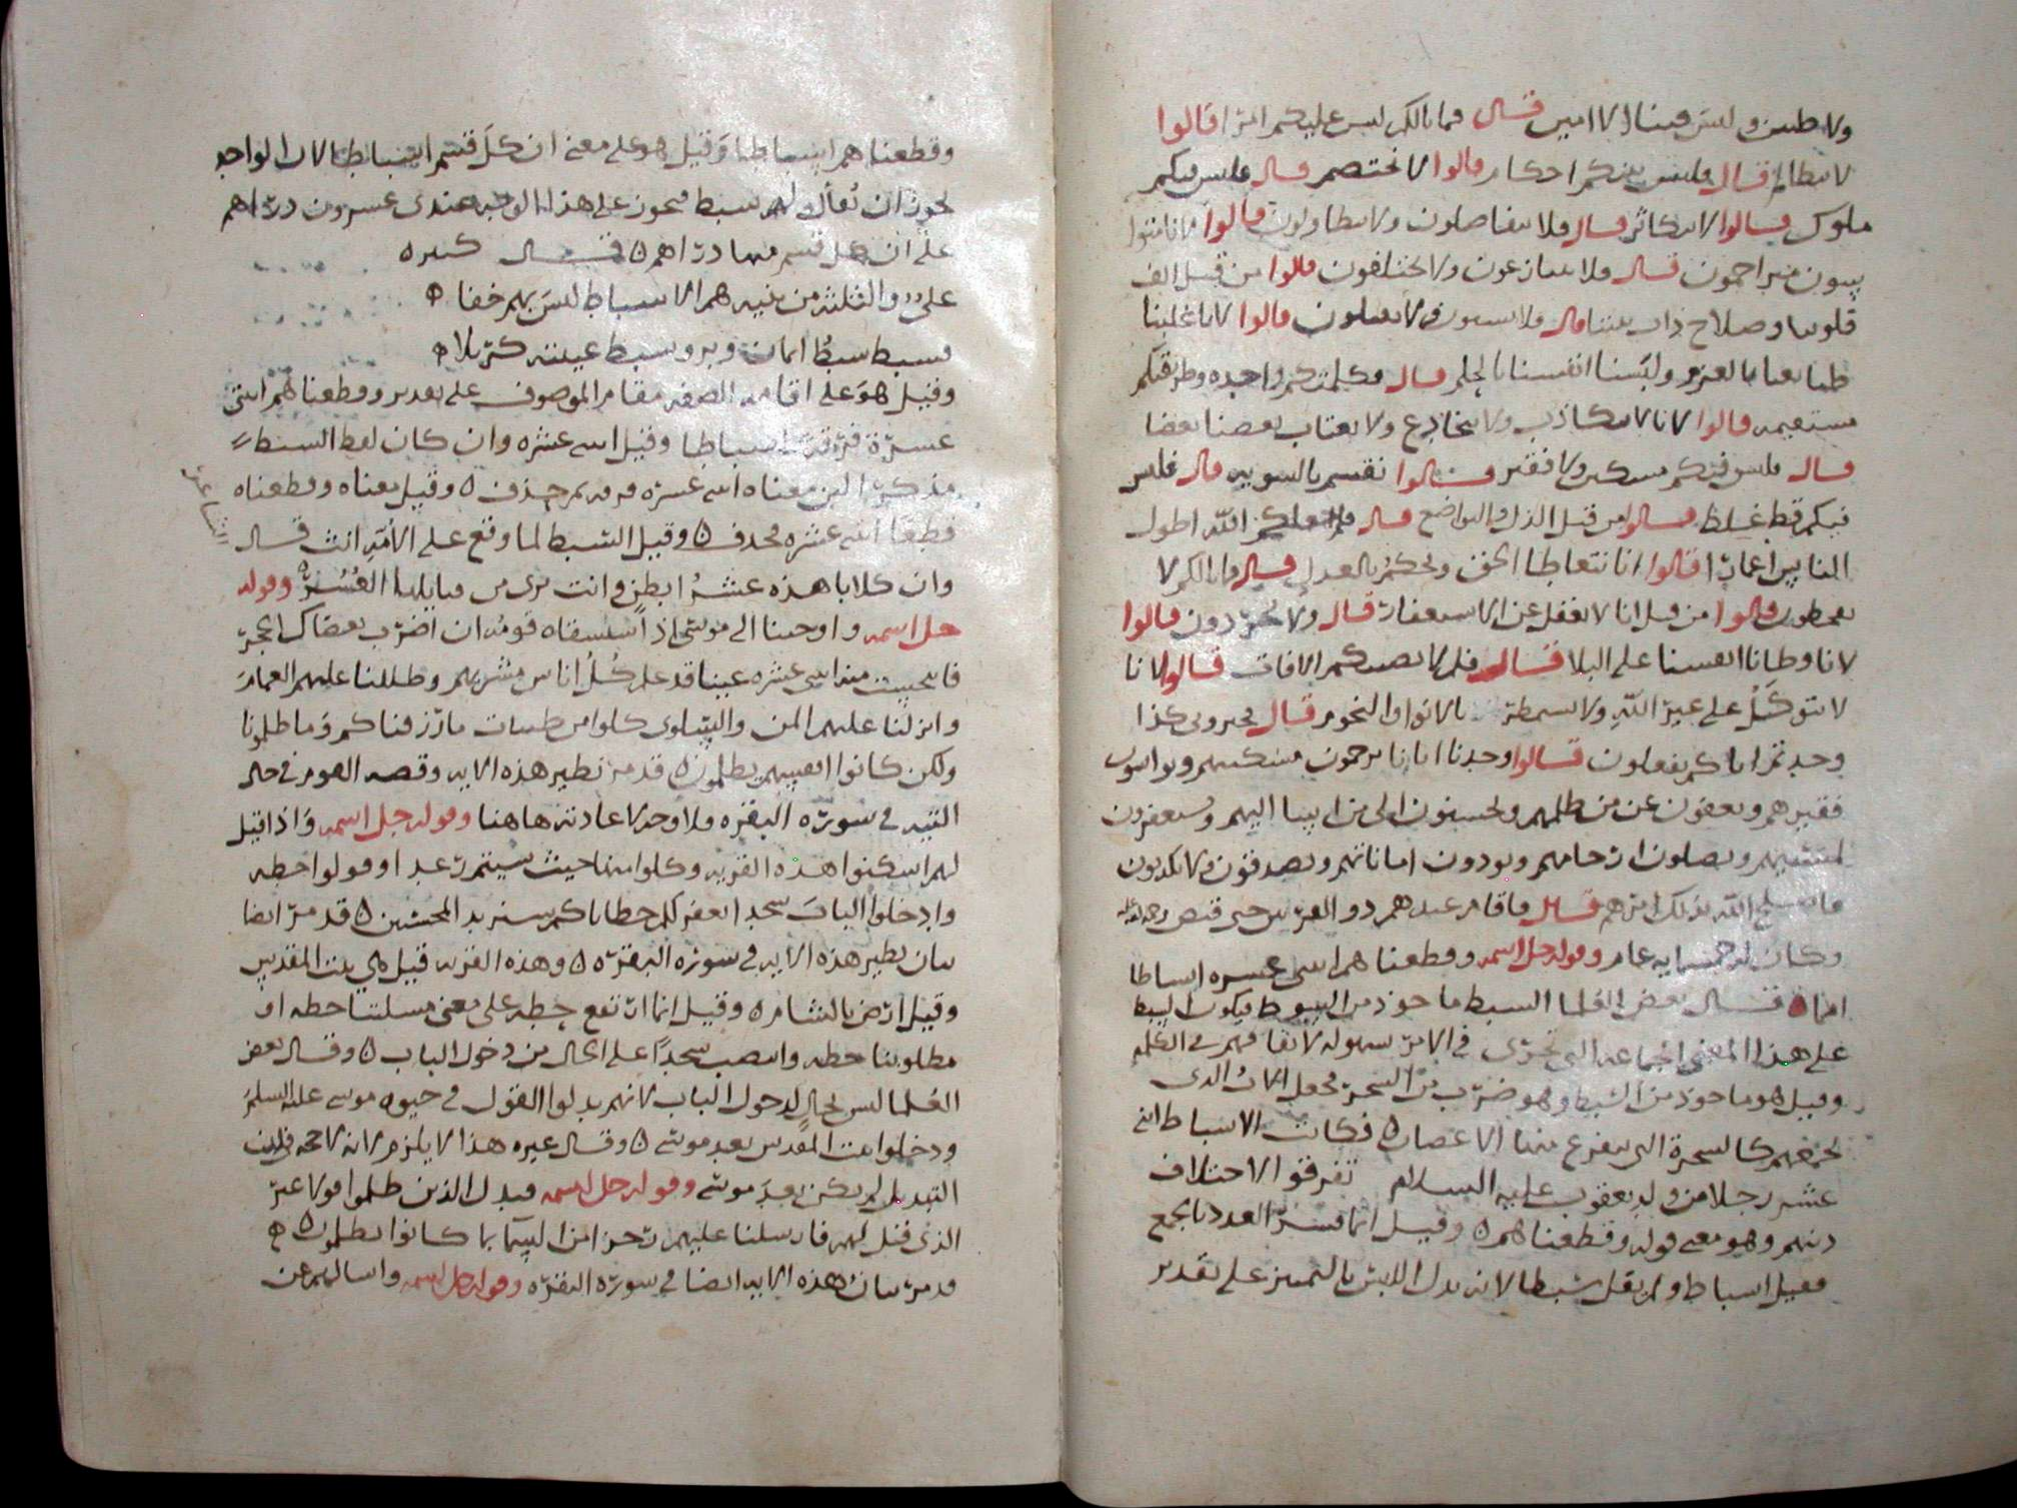 ولا طين وليس فينا الا امين قال فما بالكم ليس عليكم امرا قالوا
لا نتظالم قال فليس بينكم احكام قالوا لا نختصم قال فليس فيكم
ملوك قالوا لا نتكاثر قال فلا تتفاضلون ولا تتطاولون قالوا لانا متوا
سون متراحمون قال فلا تتنازعون ولا تختلفون قالوا من قبل الف
قلوبنا وصلاح ذات بيننا قال فلا تستبون ولا تقتتلون قالوا لانا غلبنا
طبايعنا بالعزم ولبسنا انفسنا بالحلم قال فكلمتكم واحده وطريقتكم
مستقيمه قالوا لانا لا نتكاذب ولا نتخادع ولا يغتاب بعضنا بعضا
قال فليس فيكم مسكين ولا فقير قالوا نقسم بالسويه قال فليس
فيكم فظ غليظ قالوا من قبل الذل والتواضع قال فلم جعلكم الله اطول
الناس اعمارا قالوا انا نتعاطا الحق ونحكم بالعدل قال فما بالكم لا
تقحطون قالوا من قبل انا لا نغفل عن الاستغفار قال ولا تحردون قالوا
لانا وطانا انفسنا على البلا قال فلم لا تصيبكم الافات قالوا لانا
لا نتوكل على غير الله ولا نستمطر بالانوا والنجوم قال خبروني كذا
وجدتم اباكم يفعلون قالوا وجدنا ابانا يرحمون مسكينهم ويواسون
فقيرهم ويعفون عن من ظلمهم ويحسنون الى من اسا اليهم ويستغفرون
لمسيهم ويصلون ارحامهم ويودون اماناتهم ويصدقون ولا يكذبون
فاصلح الله بذلك امرهم قال فاقام عندهم ذو القرنين حتى قبض رحمه الله
وكان له خمسمايه عام وقوله جل اسمه وقطعناهم اثنى عشره اسباطا
امما ه قال بعض العلما السبط ماخوذ من السبوط فيكون السبط
على هذا المعنى الجماعه التي تجري في الامر سهوله لاتفاقهم في الكلمه
وقيل هو ماخوذ من السبط وهو ضرب من الشجر فجعل الاب الذي
يجمعهم كالشجرة التي يتفرع منها الاغصان ه فكانت الاسباط اثني
عشر رجلا من ولد يعقوب عليه السلام تفرقوا لاختلاف
دينهم وهو معنى قوله وقطعناهم ه وقيل انما فسر العدد بالجمع
فقيل اسباط ولم يقل سبطا لانه بدل اللبس بالتمييز على تقدير
وقطعناهم اسباطا وقيل هو على معنى ان كل قسم اسباط لان الواحد
يجوز ان يقال له سبط فيجوز على هذا الوجه عندي عشرون دراهم
على ان كل قسم منها دراهم ه قال كثيره
علي والثلثه من بنيه هم الاسباط ليس بهم خفا ه
فسبط سبط ايمان وبر وسبط غيبته كربلا ه
وقيل هو على اقامه الصفه مقام الموصوف على تقدير وقطعناهم اثنتي
عشرة فرقة اسباطا وقيل اثنى عشره وان كان لفظ السبط
مذكرا لان معناه اثنى عشره فرقه ثم حذف ه وقيل معناه وقطعناه
قطعا اثنى عشره فحذف ه وقيل السبط لما وقع على الامه انث قال
اثنتا عشر
وان كلابا هذه عشر ابطن وانت بري من قبايلها العشر ه وقوله
جل اسمه واوحينا الى موسى اذ استسقاه قومه ان اضرب بعصاك الحجر
فانبجست منه اثنى عشره عينا قد علم كل اناس مشربهم وظللنا عليهم الغمام
وانزلنا عليهم المن والسلوى كلوا من طيبات ما رزقناكم وما ظلمونا
ولكن كانوا انفسهم يظلمون ه قد مر نظير هذه الايه وقصه القوم في حال
التيه في سورة البقره فلا وجه لاعادته هاهنا وقوله جل اسمه واذا قيل
لهم اسكنوا هذه القريه وكلوا منها حيث شيتم رغدا وقولوا حطه
وادخلوا الباب سجدا نغفر لكم خطاياكم سنزيد المحسنين ه قد مر ايضا
بيان نظير هذه الايه في سورة البقره ه وهذه القريه قيل هي بيت المقدس
وقيل ارض بالشام ه وقيل انما ارتفع حطه على معنى مسلتنا حطه او
مطلوبنا حطه وانتصب سجدا على الحال من دخول الباب ه وقال بعض
العلما ليس بحال لدخول الباب لانهم بدلوا القول في حيوه موسى عليه السلم
ودخلوا بيت المقدس بعد موسى ه وقال غيره هذا لا يلزم لانه لا حجه في ان
التبديل لم يكن بعد موسى وقوله جل اسمه فبدل الذين ظلموا قولا غير
الذي قيل لهم فارسلنا عليهم رجزا من السما بما كانوا يظلمون ه
قد مر بيان هذه الايه ايضا في سورة البقره وقوله جل اسمه واسالهم عن